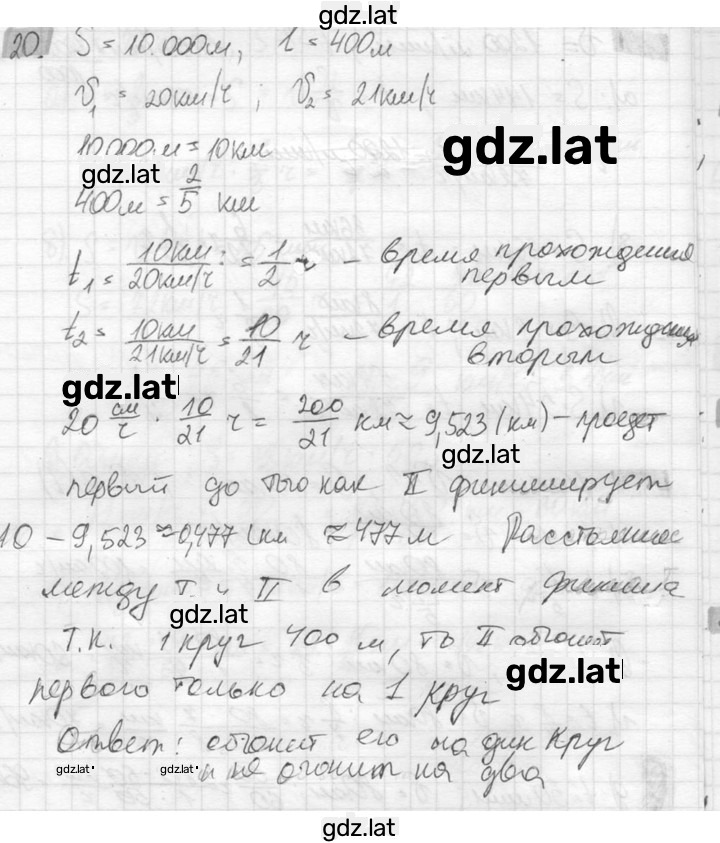 gdz.lat
20. S = 10.000м, l = 400м
V₁ = 20км/ч ; V₂ = 21км/ч
10 000 м = 10 км
gdz.lat
gdz.lat
400м = 2/5 км
t₁ = 10км/20км/ч = 1/2 ч – время прохождения
первым
t₂ = 10км/21км/ч = 10/21 ч – время прохождения
вторым
gdz.lat
20 см/ч · 10/21 ч = 200/21 км ≈ 9,523 (км) – проедет
gdz.lat
первый до того как II финиширует
10 – 9,523 ≈ 0,477 (км ≈ 477 м Расстояние
между I и II в момент финиша
gdz.lat
Т.к. 1 круг 400 м, то II обгонит
gdz.lat
первого только на 1 круг
Ответ: обгонит его на один круг
gdz.lat gdz.lat и не огонит на два
gdz.lat